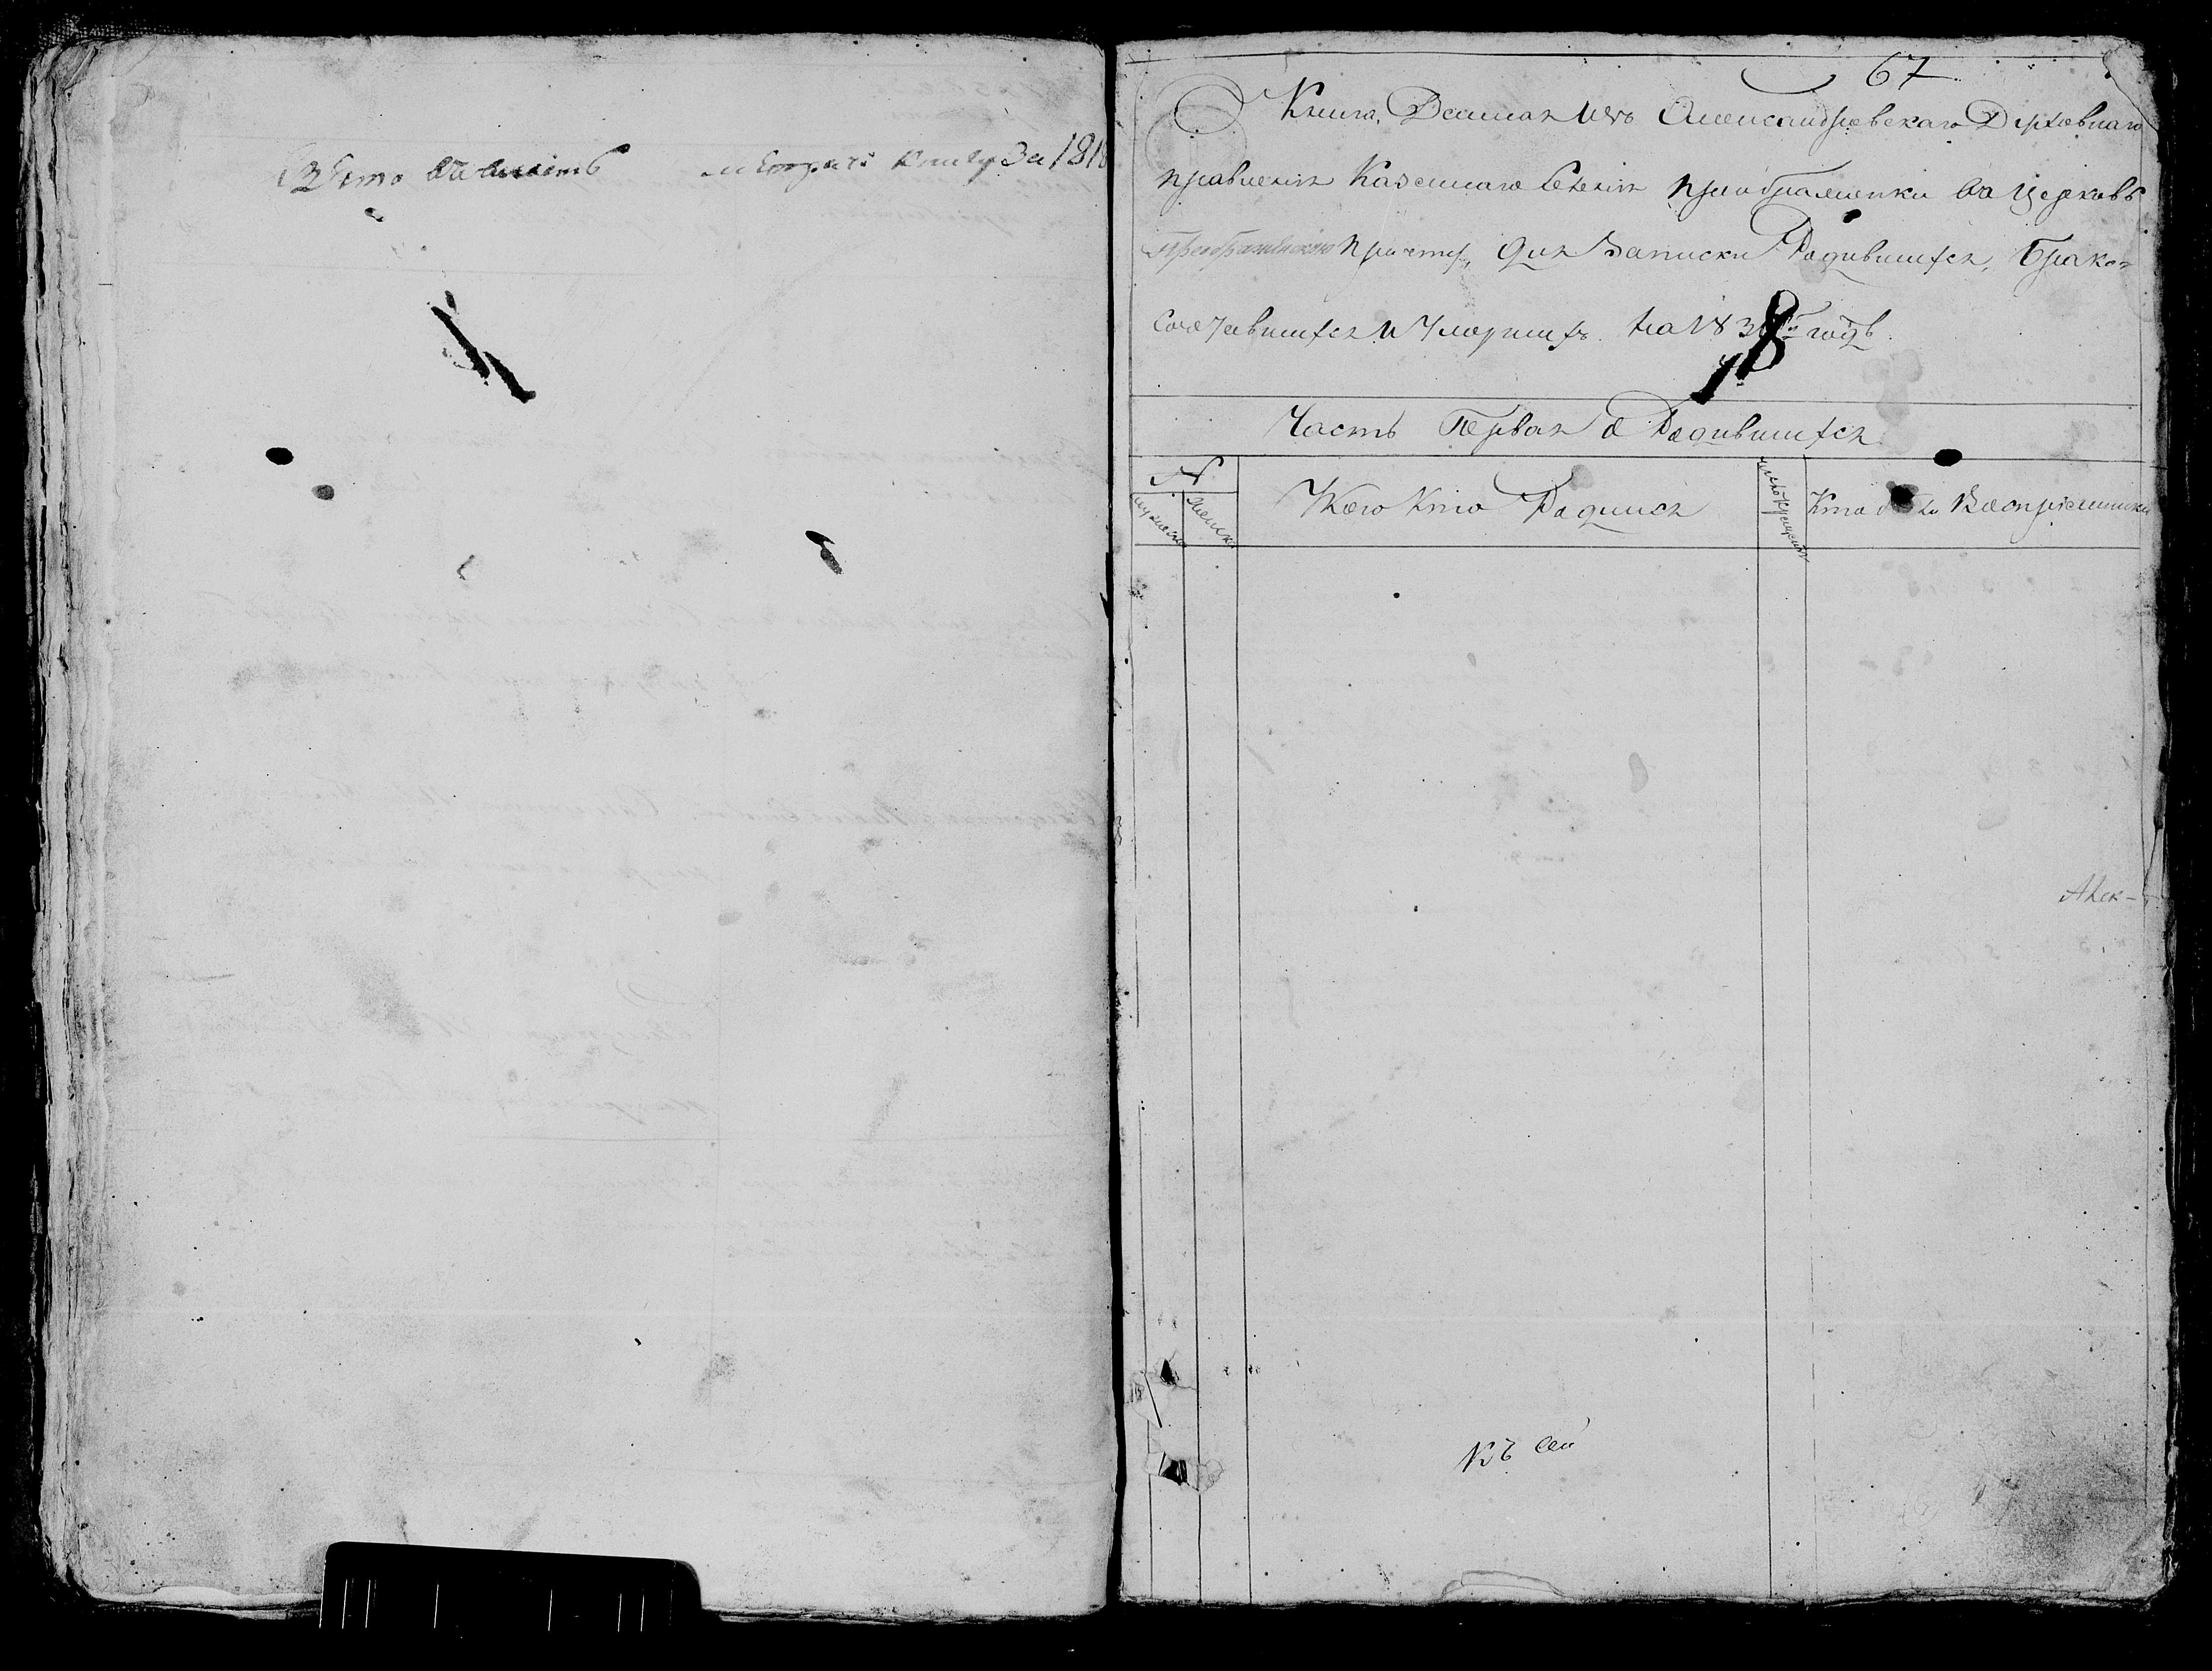 метрич: книгу За 181
67
Книга, Данная изъ Александровскаго Духовнаго
правления Казеннаго Селения Приображенки во Церковь
Преображенскою Причту, для Записки Родившихся, Брако-
сочетавшихся и Умершихъ. На 183 годъ.
18
Часть Первая о Родившихся
№
мужеска
женска
Кого Кто Родился
число крещения
Кто Восприемники
Алек-
Къ сей